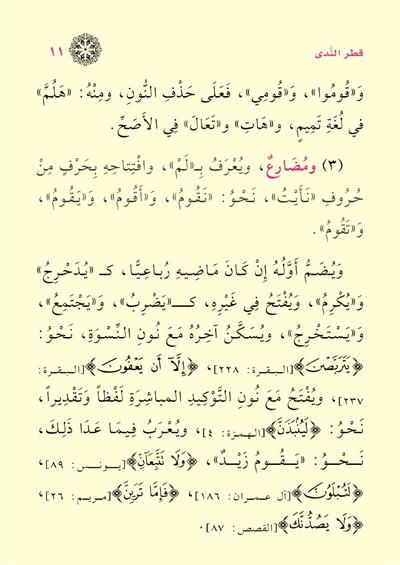 قطر النَّدى
١١
وَ«قُومُوا»، وَ«قُومِي»، فَعَلَى حَذْفِ النُّونِ، ومِنْهُ: «هَلُمَّ»
في لُغَةِ تَمِيمٍ، و«هَاتِ» و«تَعَالَ» فِي الأَصَحِّ.
(٣) ومُضَارِعٌ، ويُعْرَفُ بـ«لَمْ»، وافْتِتاحِهِ بِحَرْفٍ مِنْ
حُروفِ «نَأَيْتُ»، نَحْوُ: «نَقُومُ»، وَ«أَقُومُ»، وَ«يَقُومُ»،
وَ«تَقُومُ».
وَيُضَمُّ أَوَّلُهُ إِنْ كَانَ مَاضِيهِ رُباعِيًّا، كـ «يُدَحْرِجُ»
وَ«يُكْرِمُ»، وَيُفْتَحُ فِي غَيْرِهِ، كـــ«يَضْرِبُ»، وَ«يَجْتَمِعُ»،
وَ«يَسْتَخْرِجُ»، ويُسكَّنُ آخِرُهُ مَعَ نُونِ النِّسْوَةِ، نَحْوُ:
﴿يَتَرَبَّصْنَ﴾[البقرة: ٢٢٨]، ﴿إِلَّا أَن يَعْفُونَ﴾[البقرة:
٢٣٧]، ويُفْتَحُ مَعَ نُونِ التَّوْكِيدِ المباشِرَةِ لَفْظاً وَتَقْدِيراً،
نَحْوُ: ﴿لَيُنْبَذَنَّ﴾[الهمزة: ٤]، ويُعْرَبُ فِيمَا عَدَا ذَلِكَ،
نَـحْـوُ: «يَـقُـومُ زَيْـدٌ»، ﴿وَلَا نَتَّبِعَآنِّ﴾[يـونـس: ٨٩]،
﴿لَتُبْلَوُنَّ﴾[آل عـمـران: ١٨٦]، ﴿فَإِمَّا تَرَيِنَّ﴾[مـريـم: ٢٦]،
﴿وَلَا يَصُدُّنَّكَ﴾[القصص: ٨٧].